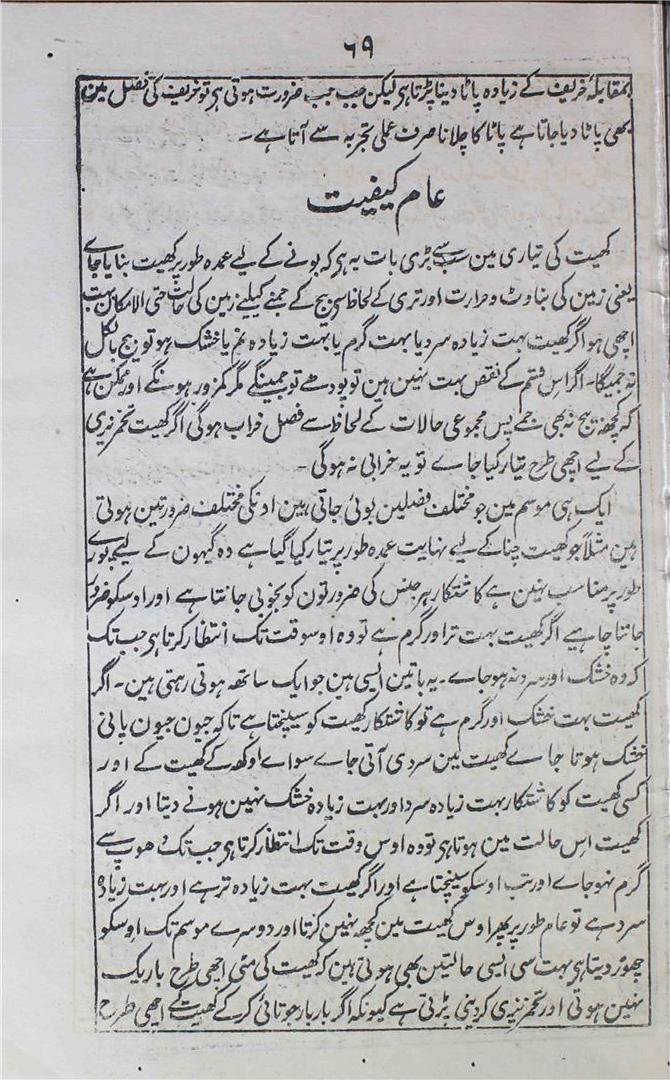 ۶۹
بمقابلۂ خریف کے زیادہ پاٹا دینا پڑتا ہی لیکن جب جب ضرورت ہوتی ہی تو خریف کی فصل مین
بھی پاٹا دیا جاتا ہے پاٹا کا چلانا صرف عملی تجربہ سے آتا ہے۔
عام کیفیت
کھیت کی تیاری مین سب سے بڑی بات یہ ہی کہ بونے کے لیے عمدہ طور پر کھیت بنایا جاے
یعنی زمین کی بناوٹ و حرارت اور تری کے لحاظ سی بیج کے جمنے کیلیے زمین کی حالت حتی الامکان بہت
اچھی ہو اگر کھیت بہت زیادہ سرد یا بہت گرم یا بہت زیادہ نم یا خشک ہو تو بیج بالکل
نہ جمیگا۔ اگر اس قسم کے نقص بہت نہین ہین تو پودھے تو جمینگے مگر کمزور ہونگے اور ممکن ہے
کہ کچھ بیج نہ بھی جمے پس مجموعی حالات کے لحاظ سے فصل خراب ہوگی اگر کھیت تخمریزی
کے لیے اچھی طرح تیار کیا جاے تو یہ خرابی نہ ہوگی۔
ایک ہی موسم مین جو مختلف فصلین بوئی جاتی ہین اونکی مختلف ضرورتین ہوتی
ہین مثلاً جو کھیت چنا کے لیے نہایت عمدہ طور پر تیار کیا گیا ہے وہ گیہون کے لیے پورے
طور پر مناسب نہین ہے کاشتکار ہر جنس کی ضرورتون کو بخوبی جانتا ہے اور اوسکو ضرور
جاننا چاہیے اگر کھیت بہت تر اور گرم ہے تو وہ اوسوقت تک انتظار کرتا ہی جب تک
کہ وہ خشک اور سرد نہ ہو جاے۔ یہ باتین ایسی ہین جو ایک ساتھ ہوتی رہتی ہین۔ اگر
کھیت بہت خشک اور گرم ہے تو کاشتکار کھیت کو سینچتا ہے تاکہ جیون جیون پانی
خشک ہوتا جاے کھیت مین سردی آتی جاے سواے اوکھ کے کھیت کے اور
کسی کھیت کو کاشتکار بہت زیادہ سرد اور بہت زیادہ خشک نہین ہونے دیتا اور اگر
کھیت اس حالت مین ہوتا ہی تو وہ اوس وقت تک انتظار کرتا ہی جب تک دھوپ سے
گرم نہو جاے اور تب اوسکو سینچتا ہے اور اگر کھیت بہت زیادہ تر ہے اور بہت زیادہ
سرد ہے تو عام طور پر پھر اوس کھیت مین کچھ نہین کرتا اور دوسرے موسم تک اوسکو
چھوڑ دیتا ہی بہت سی ایسی حالتین بھی ہوتی ہین کہ کھیت کی مٹی اچھی طرح باریک
نہین ہوتی اور تخمریزی کر دینی پڑتی ہے کیونکہ اگر بار بار جوتائی کر کے کھیت کے اچھی طرح